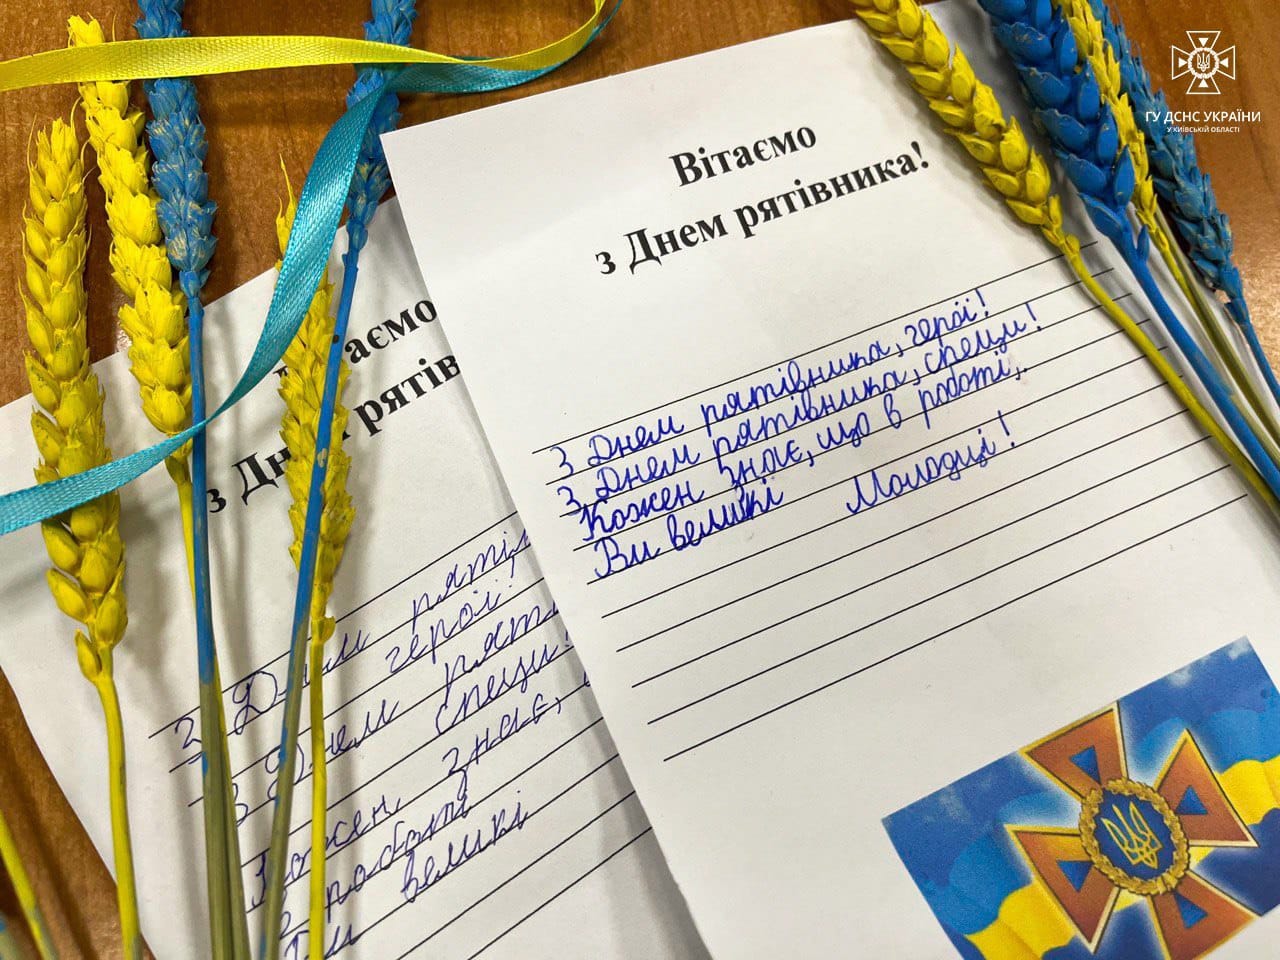 ГУ ДСНС УКРАЇНИ
У КИЇВСЬКІЙ ОБЛАСТІ
Вітаємо
з Днем рятівника!
З Днем рятівника, герої!
З Днем рятівника, специ!
Кожен знає, що в роботі,
Ви великі Молодці!
аємо
з Дн рятів
З Днем ряті
герої!
З Днем рят
специ!
Кожен знає,
в роботі
Ви великі